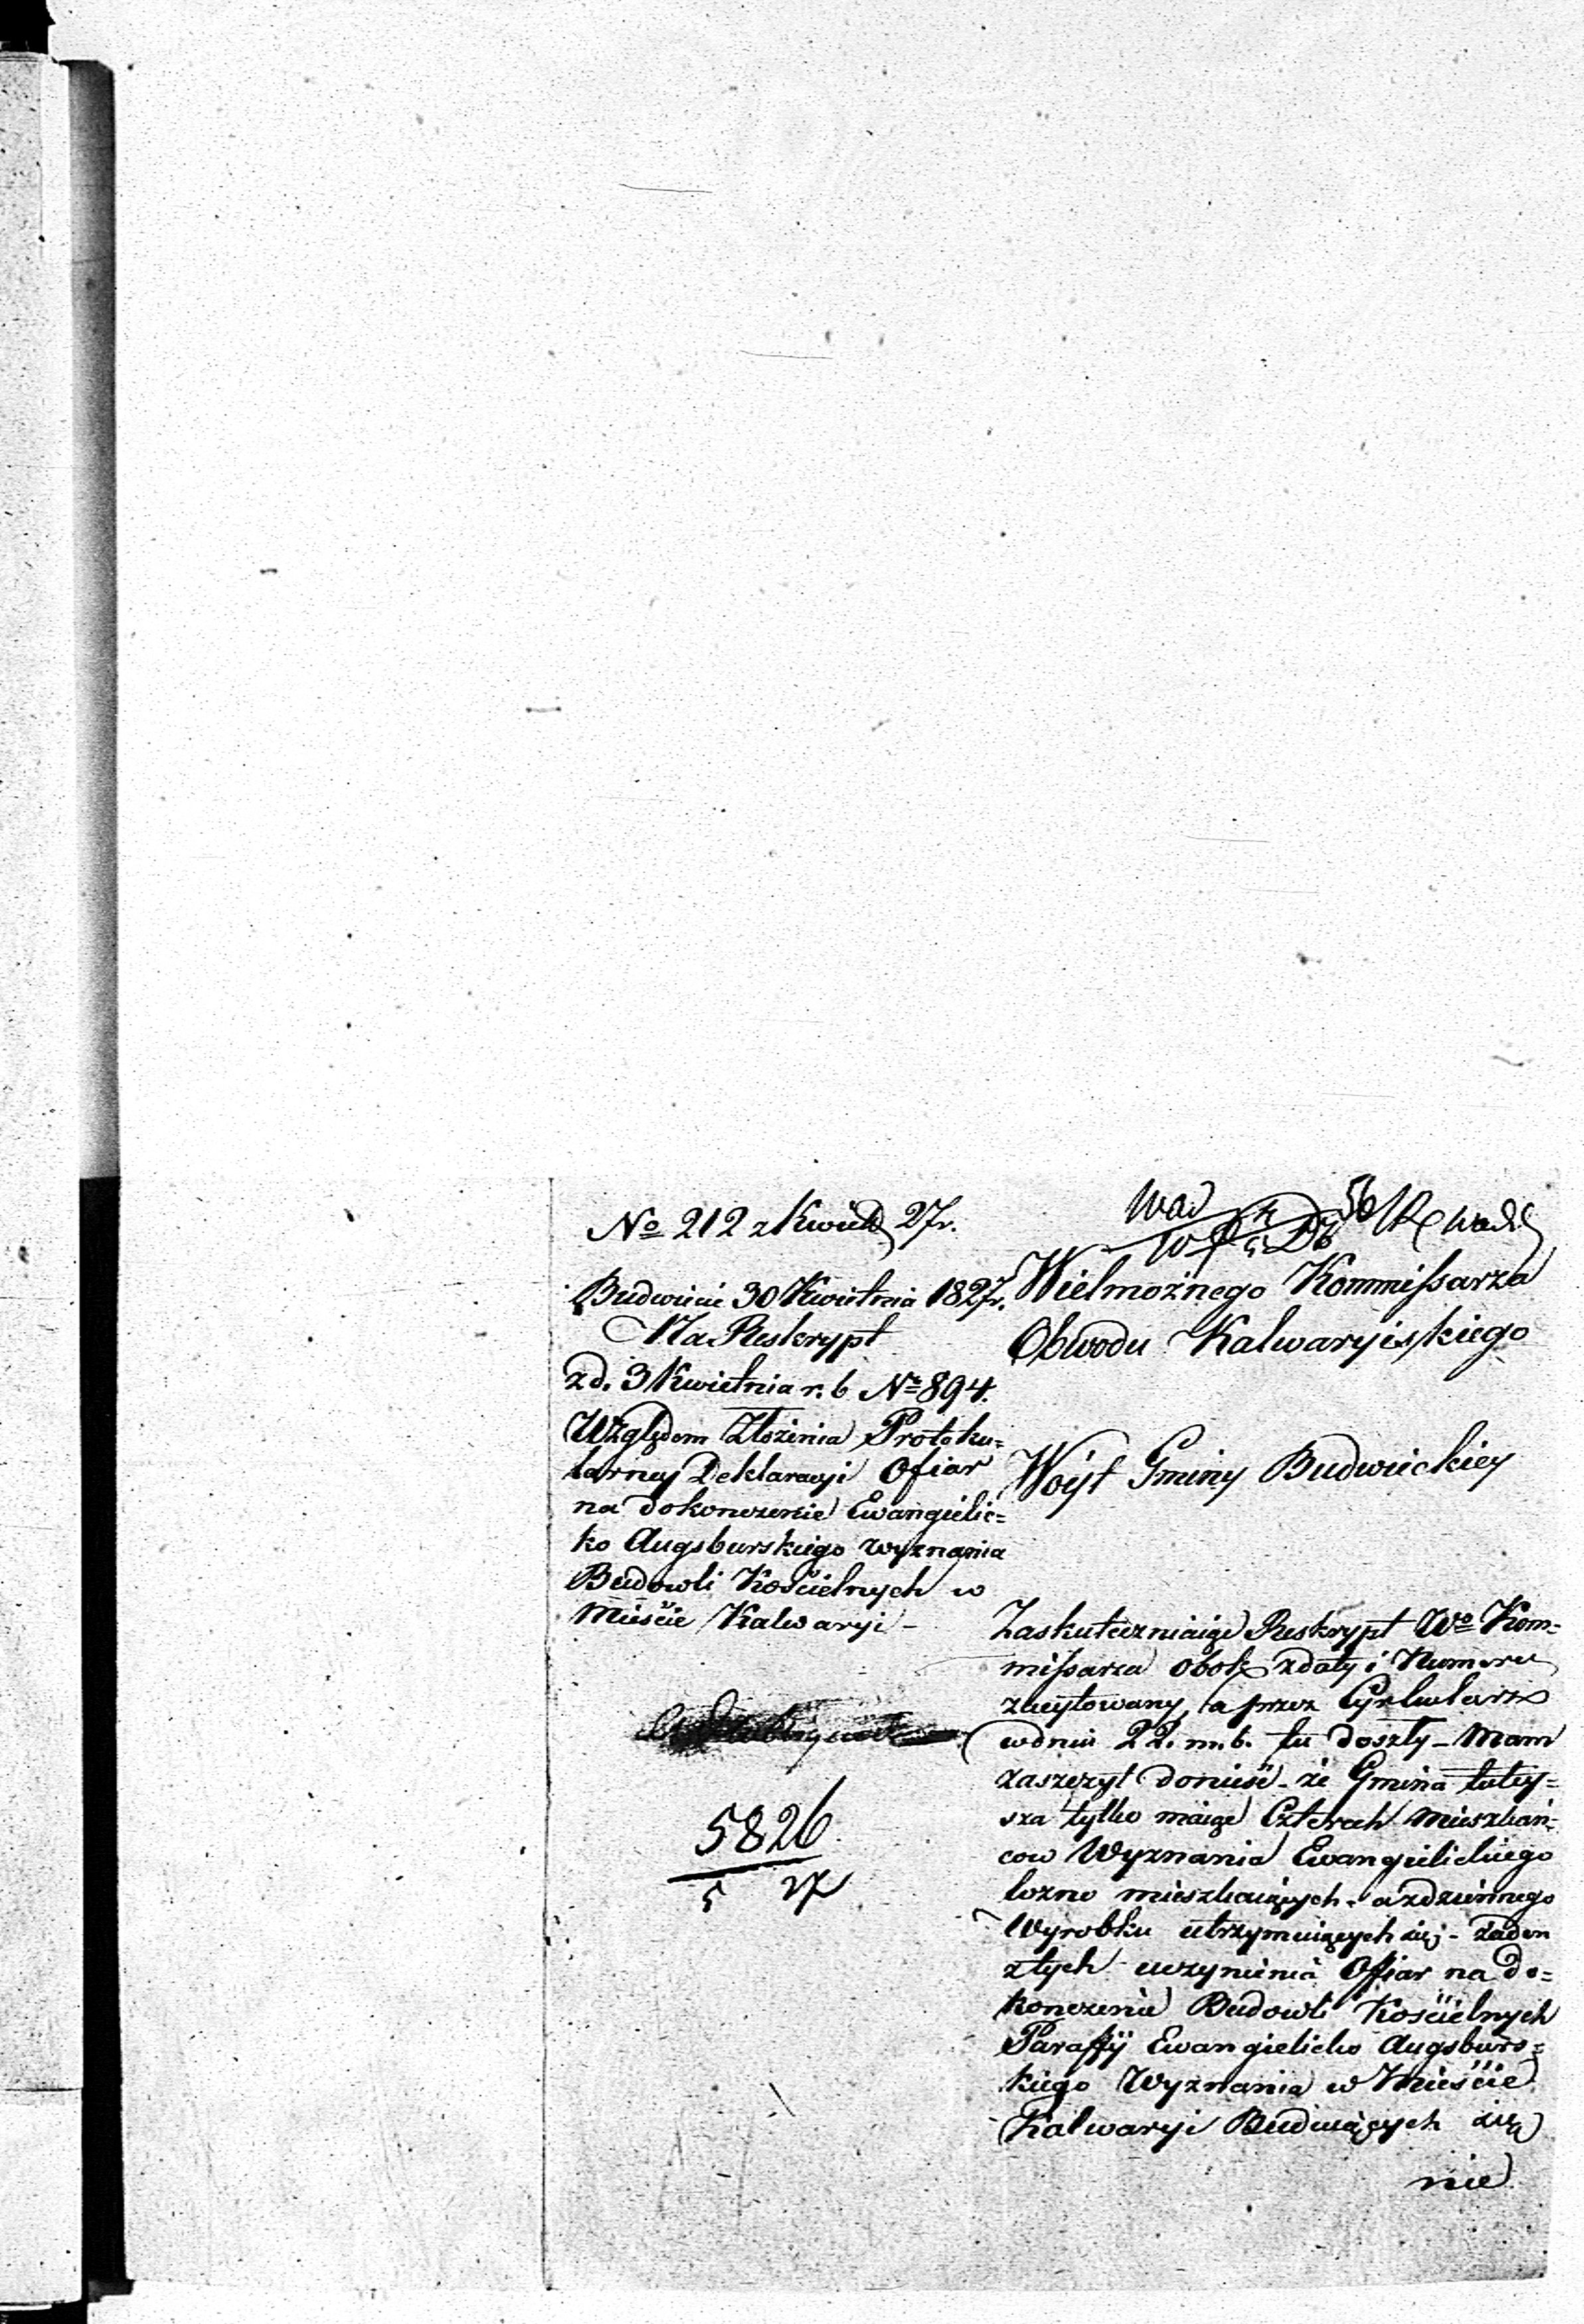 No 212 z Kwiet 27r.
Budwiecie 30 Kwietnia 1827r.
Na Reskrypt
z d. 3 Kwietnia r. b. No 894.
Względem Złożenia Protoku=
larney Deklaracyi Ofiar
na dokonczenie Ewangielic=
ko Augsburskiego wyznania
Budowli Kościelnych w
Mieście Kalwaryi -
5826
5 27
56
Wielmożnego Kommissarza
Obwodu Kalwaryiskiego
Woyt Gminy Budwieckiey
Zaskuteczniaiąc Reskrypt Wo Kom=
missarza obok z daty i Numeru
zacytowany, a przez Cyrkularz
w dniu 22. m. b. tu doszły - Mam
zaszczyt donieść - że Gmina tutey=
sza tylko maiąc Czterech Mieszkań=
cow Wyznania Ewangielickiego
lozno mieszkaiących - a z dziennego
Wyrobku utrzymuiących się - żaden
z tych uczynienia Ofiar na do=
konczenie Budowli Kościelnych
Paraffij Ewangielicko Augsburs=
kiego Wyznania w Mieście
Kalwaryi Buduiących się
nie